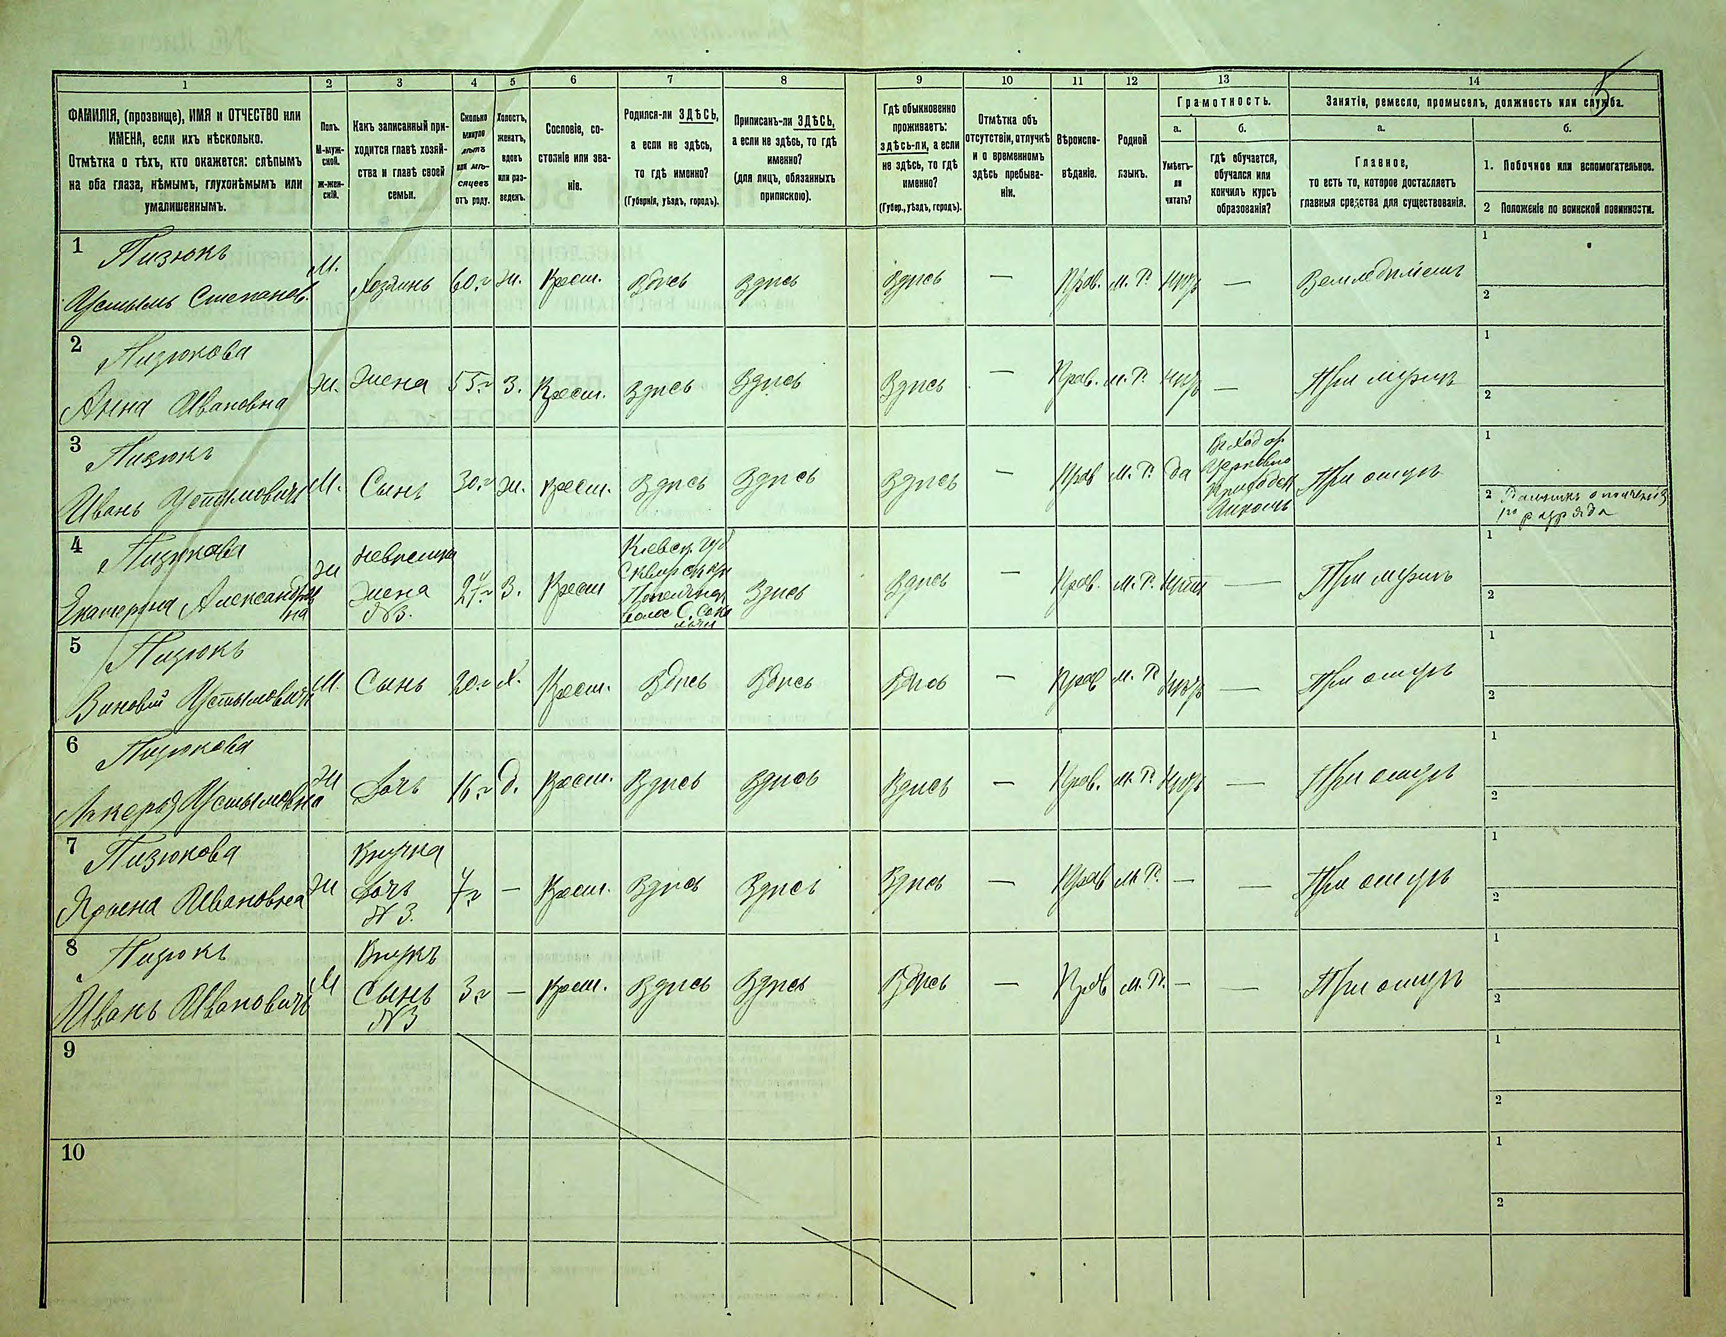 1
2
3
4
5
6
7
8
9
10
11
12
13
14
5
ФАМИЛІЯ, (прозвище), ИМЯ и ОТЧЕСТВО или
ИМЕНА, если ихъ нѣсколько.
Отмѣтка о тѣхъ, кто окажется: слѣпымъ
на оба глаза, нѣмымъ, глухонѣмымъ или
умалишеннымъ.
Полъ.
М-муж-
ской.
Ж-жен-
скій.
Какъ записанный при-
ходится главѣ хозяй-
ства и главѣ своей
семьи.
Сколько
минуло
лѣтъ
или мѣ-
сяцевъ
отъ роду.
Холостъ,
женатъ,
вдовъ
или раз-
веденъ.
Сословіе, со-
стояніе или зва-
ніе.
Родился-ли ЗДѢСЬ,
а если не здѣсь,
то гдѣ именно?
(Губернія, уѣздъ, городъ).
Приписанъ-ли ЗДѢСЬ,
а если не здѣсь, то гдѣ
именно?
(для лицъ, обязанныхъ
припискою).
Гдѣ обыкновенно
проживаетъ:
здѣсь-ли, а если
не здѣсь, то гдѣ
именно?
(Губер., уѣздъ, городъ).
Отмѣтка объ
отсутствіи, отлучкѣ
и о временномъ
здѣсь пребыва-
ніи.
Вѣроиспо-
вѣданіе.
Родной
языкъ.
Грамотность.
а.
Умѣетъ-
ли
читать?
б.
гдѣ обучается,
обучался или
кончилъ курсъ
образованія?
Занятіе, ремесло, промыселъ, должность или служба.
а.
Главное,
то есть то, которое доставляетъ
главныя средства для существованія.
б.
1. Побочное или вспомогательное.
2 Положеніе по воинской повинности.
1
Пизюкъ
Устымъ Степанов.
М. Хозяинъ 60.г Ж. Крест. Здѣсь Здѣсь Здѣсь — Прав. М.Р. —
1
2
2
Пизюкова
Анна Ивановна
Ж. Жена 55.г З. Крест. Здѣсь Здѣсь Здѣсь — Прав. М.Р. — При мужѣ
1
2
3
Пизюкъ
Иванъ Устымовичъ
М. Сынъ 30.г Ж. Крест. Здѣсь Здѣсь Здѣсь — Прав М.Р. да
Церковно
Приходск
Школѣ
При отцѣ
1
2 Ратникъ ополченія
1го разряда
4
Пизюкова
Екатерина Александров
на
Ж
Невѣстка
Жена
№3.
З. Крест
Кіевск. губ
Сквирск
волос С.
Здѣсь Здѣсь — Прав. М.Р. — При мужѣ
1
2
5
Пизюкъ
Зиновій Устымовичъ
М. Сынъ 20.г Х. Крест. Здѣсь Здѣсь Здѣсь — Прав М.Р — При отцѣ
1
2
6
Пизюкова
Устымовна
Ж Дочь 16.г Д. Крест. Здѣсь Здѣсь Здѣсь — Прав. М.Р. При отцѣ
1
2
7
Пизюкова
Ивановна
Ж
Внучка
Дочь
№3.
— Крест. Здѣсь Здѣсь Здѣсь — Прав М.Р. — — При отцѣ
1
2
8
Пизюкъ
Иванъ Ивановичъ
М
Внукъ
Сынъ
№3
3.г — Крест. Здѣсь Здѣсь Здѣсь — Прав М.Р. — — При отцѣ
1
2
9
1
2
10
1
2